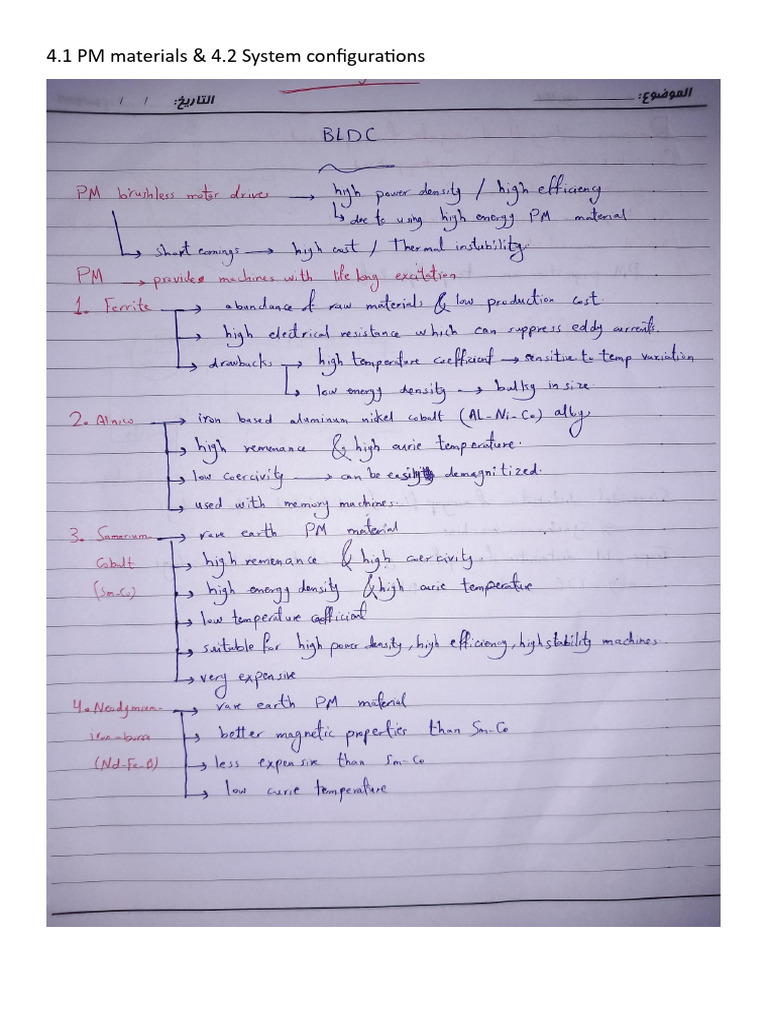 4.1 PM materials & 4.2 System configurations
الموضوع: التاريخ: / /
BLDC
PM brushless motor drives → high power density / high efficiency
↳ due to using high energy PM material
↳ short comings → high cost / Thermal instubility
PM → provides machines with life long excitation
1. Ferrite → abundance of raw materials & low production cost
→ high electrical resistance which can suppress eddy currents.
→ drawbacks → high temperature coefficient → sensitive to temp variation
↳ low energy density → bulky in size
2. Alnico → iron based aluminum nickel cobalt (AL-Ni-Co) alloy
→ high remenance & high curie temperature.
→ low coercivity → can be easily demagnitized.
→ used with memory machines.
3. Samarium → rare earth PM material
Cobalt → high remenance & high coercivity
(Sm-Co) → high energy density & high curie temperature
→ low temperature coefficient
→ suitable for high power density, high efficiency, high stability machines.
→ very expensive
4. Neodymium → rare earth PM material
iron-boron → better magnetic properties than Sm-Co
(Nd-Fe-B) → less expensive than Sm-Co
→ low curie temperature